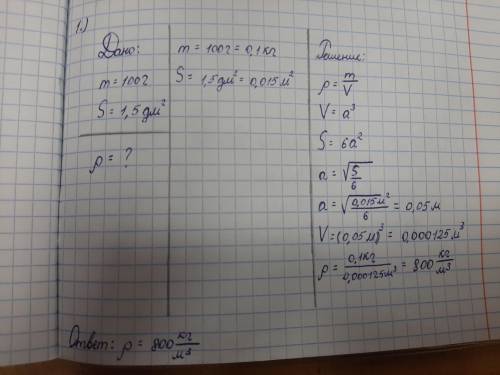 1.)
Дано:
m = 100г
S = 1,5 дм²
ρ = ?
m = 100г = 0,1 кг
S = 1,5 дм² = 0,015 м²
Решение:
ρ = m/V
V = a³
S = 6a²
a = √(S/6)
a = √(0,015 м²/6) = 0,05 м
V = (0,05 м)³ = 0,000125 м³
ρ = 0,1 кг/0,000125 м³ = 800 кг/м³
Ответ: ρ = 800 кг/м³